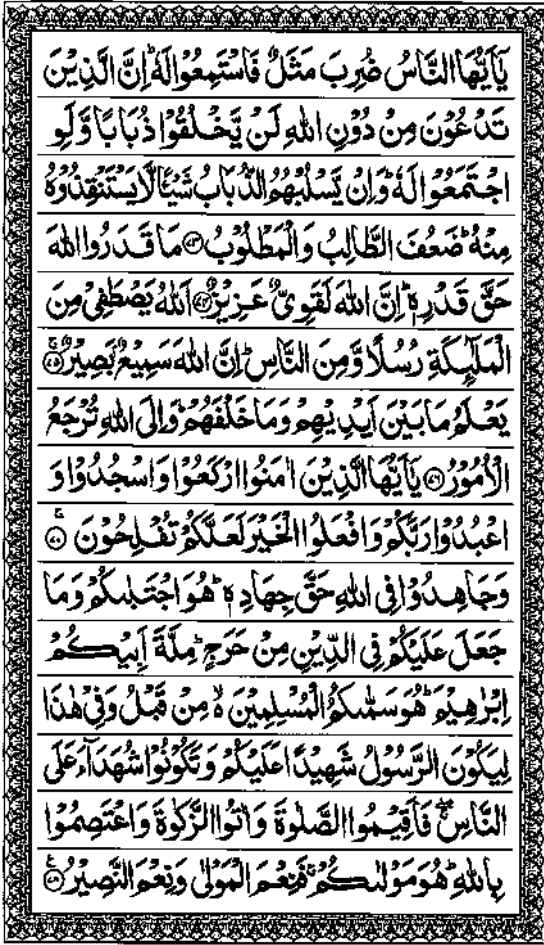 يٰۤاَيُّهَا النَّاسُ ضُرِبَ مَثَلٌ فَاسْتَمِعُوْا لَهٗ ؕ اِنَّ الَّذِيْنَ
تَدْعُوْنَ مِنْ دُوْنِ اللّٰهِ لَنْ يَّخْلُقُوْا ذُبَابًا وَّلَوِ
اجْتَمَعُوْا لَهٗ ؕ وَاِنْ يَّسْلُبْهُمُ الذُّبَابُ شَيْـًٔا لَّا يَسْتَنْقِذُوْهُ
مِنْهُ ؕ ضَعُفَ الطَّالِبُ وَالْمَطْلُوْبُ ﴿۷۳﴾ مَا قَدَرُوا اللّٰهَ
حَقَّ قَدْرِهٖ ؕ اِنَّ اللّٰهَ لَقَوِيٌّ عَزِيْزٌ ﴿۷۴﴾ اَللّٰهُ يَصْطَفِيْ مِنَ
الْمَلٰٓئِكَةِ رُسُلًا وَّمِنَ النَّاسِ ؕ اِنَّ اللّٰهَ سَمِيْعٌۢ بَصِيْرٌ ﴿۷۵﴾
يَعْلَمُ مَا بَيْنَ اَيْدِيْهِمْ وَمَا خَلْفَهُمْ ؕ وَاِلَى اللّٰهِ تُرْجَعُ
الْاُمُوْرُ ﴿۷۶﴾ يٰۤاَيُّهَا الَّذِيْنَ اٰمَنُوا ارْكَعُوْا وَاسْجُدُوْا وَ
اعْبُدُوْا رَبَّكُمْ وَافْعَلُوا الْخَيْرَ لَعَلَّكُمْ تُفْلِحُوْنَ ﴿۷۷﴾
وَجَاهِدُوْا فِي اللّٰهِ حَقَّ جِهَادِهٖ ؕ هُوَ اجْتَبٰىكُمْ وَمَا
جَعَلَ عَلَيْكُمْ فِي الدِّيْنِ مِنْ حَرَجٍ ؕ مِلَّةَ اَبِيْكُمْ
اِبْرٰهِيْمَ ؕ هُوَ سَمّٰىكُمُ الْمُسْلِمِيْنَ ۙ۬ مِنْ قَبْلُ وَفِيْ هٰذَا
لِيَكُوْنَ الرَّسُوْلُ شَهِيْدًا عَلَيْكُمْ وَتَكُوْنُوْا شُهَدَآءَ عَلَى
النَّاسِ ۚۖ فَاَقِيْمُوا الصَّلٰوةَ وَاٰتُوا الزَّكٰوةَ وَاعْتَصِمُوْا
بِاللّٰهِ ؕ هُوَ مَوْلٰىكُمْ ۚ فَنِعْمَ الْمَوْلٰى وَنِعْمَ النَّصِيْرُ ﴿۷۸﴾